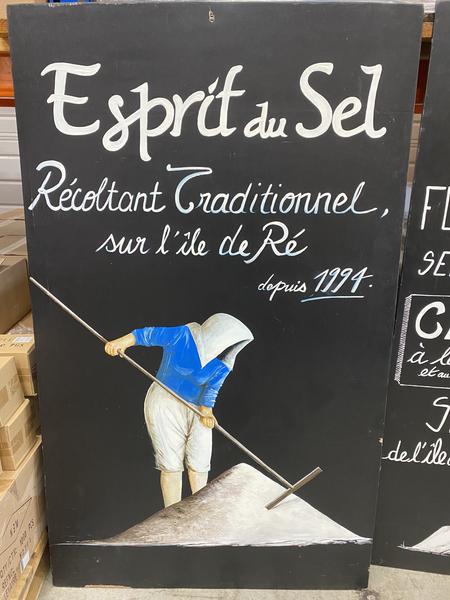 Esprit du Sel
Récoltant Traditionnel,
sur l'île de Ré
depuis 1994.
à l
et au
de l'île